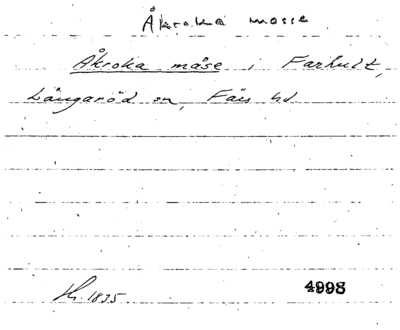 Åkroka mosse
Åkroka måse i Farhult,
Långaröd sn, Färs hd
1895
4998